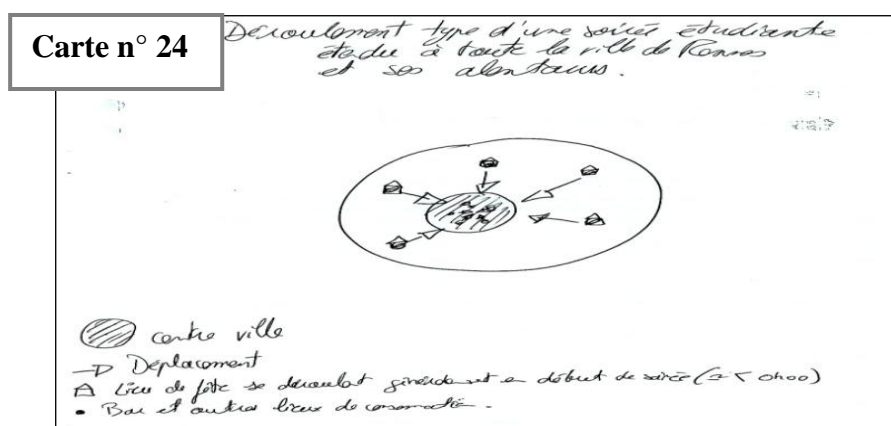 Carte n° 24
Déroulement type d'une soirée étudiante
étendu à toute la ville de Rennes
et ses alentours.
centre ville
Déplacement
Lieu de fête se déroulant généralement en début de soirée ( < 0h00)
Bar et autres lieux de consommation.